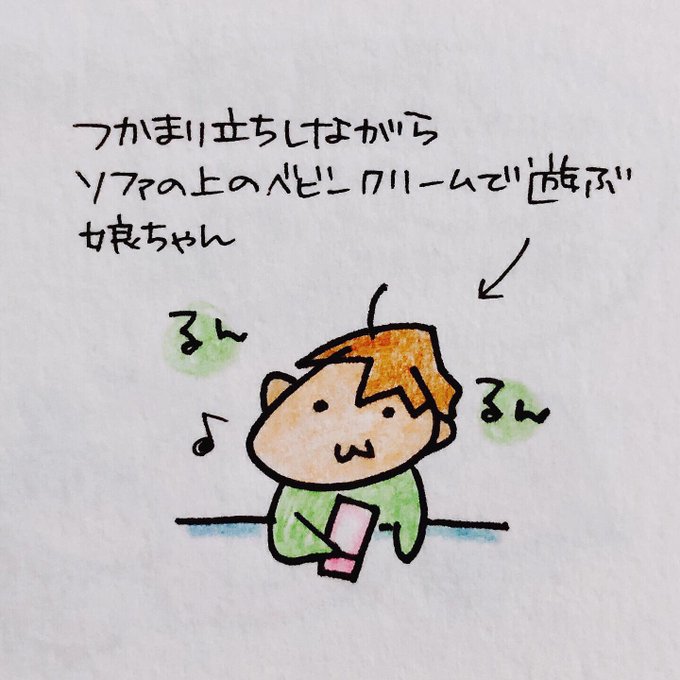 つかまり立ちしながら
ソファの上のベビークリームで遊ぶ
娘ちゃん
るん
るん